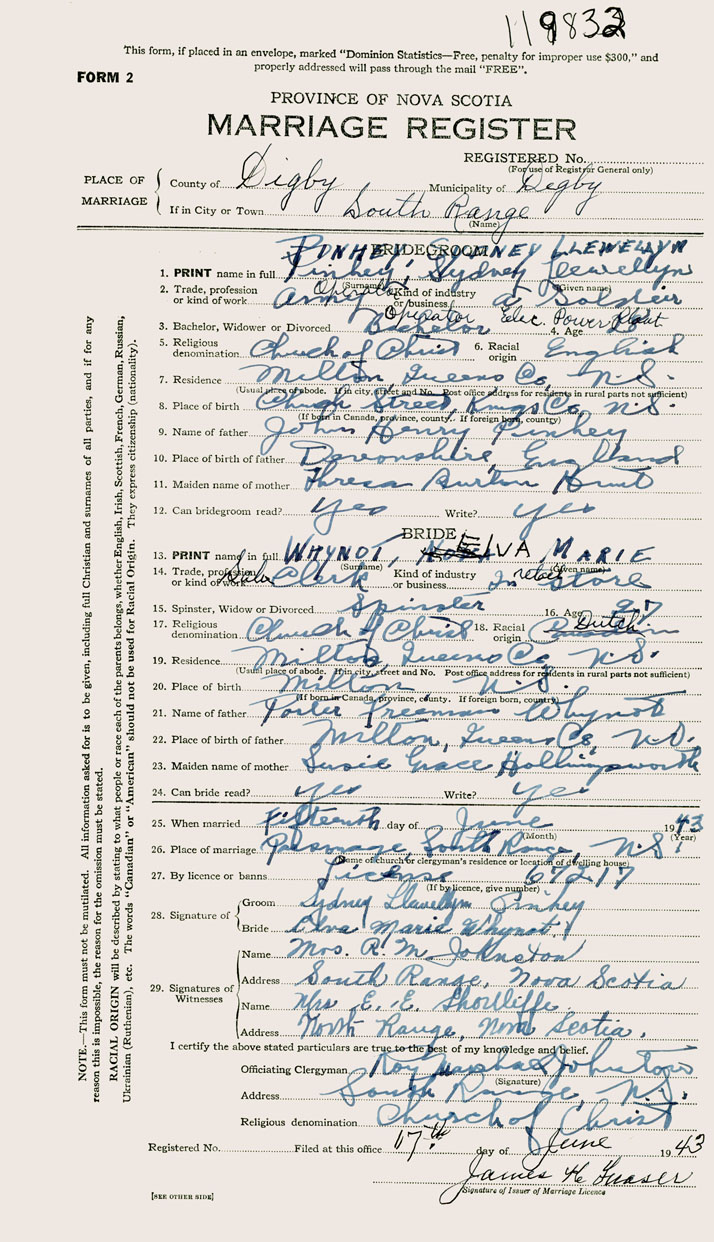 119832
This form, if placed in an envelope, marked “Dominion Statistics—Free, penalty for improper use $300,” and
properly addressed will pass through the mail “FREE”.
FORM 2
PROVINCE OF NOVA SCOTIA
MARRIAGE REGISTER
REGISTERED No.
(For use of Registrar General only)
PLACE OF MARRIAGE
County of Digby Municipality of Digby
If in City or Town South Range
(Name)
BRIDEGROOM
PINHEY, SYDNEY LLEWELLYN
1. PRINT name in full Pinhey, Sydney Llewellyn
(Surname) (Given name)
2. Trade, profession or kind of work Army Operator Kind of industry or business Soldier
Operator Elec. Power Plant
3. Bachelor, Widower or Divorced Bachelor 4. Age
5. Religious denomination Church of Christ 6. Racial origin English
7. Residence Milton, Queens Co, N.S.
(Usual place of abode. If in city, street and No. Post office address for residents in rural parts not sufficient)
8. Place of birth Church Street, Kings Co, N.S.
(If born in Canada, province, county. If foreign born, country)
9. Name of father John Henry Pinhey
10. Place of birth of father Devonshire, England
11. Maiden name of mother Theresa Burton Hunt
12. Can bridegroom read? Yes Write? yes
BRIDE
13. PRINT name in full WHYNOT, ELVA MARIE
(Surname) (Given name)
14. Trade, profession or kind of work Sales Clerk Kind of industry or business In retail Store
15. Spinster, Widow or Divorced Spinster 16. Age 27
17. Religious denomination Church of Christ 18. Racial origin Dutch
19. Residence Milton, Queens Co, N.S.
(Usual place of abode. If in city, street and No. Post office address for residents in rural parts not sufficient)
20. Place of birth Milton N.S.
(If born in Canada, province, county. If foreign born, country)
21. Name of father Porter Freeman Whynot
22. Place of birth of father Milton, Queens Co, N.S.
23. Maiden name of mother Susie Grace Hollingsworth
24. Can bride read? Yes Write? Yes
25. When married Fifteenth day of June 1943
(Month) (Year)
26. Place of marriage Parsonage, South Range, N.S.
(Name of church or clergyman's residence or location of dwelling house)
27. By licence or banns License 67217
(If by licence, give number)
28. Signature of
Groom Sydney Llewellyn Pinhey
Bride Elva Marie Whynot
29. Signatures of Witnesses
Name Mrs. R. M. Johnston
Address South Range, Nova Scotia
Name Mrs E. E. Shortliffe
Address North Range, Nova Scotia.
I certify the above stated particulars are true to the best of my knowledge and belief.
Officiating Clergyman Roy Johnston
(Signature)
Address South Range, N.S.
Religious denomination Church of Christ
Registered No. Filed at this office 17th day of June 1943
James H Fraser
Signature of Issuer of Marriage Licence
[SEE OTHER SIDE]
NOTE.—This form must not be mutilated. All information asked for is to be given, including full Christian and surnames of all parties, and if for any
reason this is impossible, the reason for the omission must be stated.
RACIAL ORIGIN will be described by stating to what people or race each of the parents belongs, whether English, Irish, Scottish, French, German, Russian,
Ukrainian (Ruthenian), etc. The words “Canadian” or “American” should not be used for Racial Origin. They express citizenship (nationality).